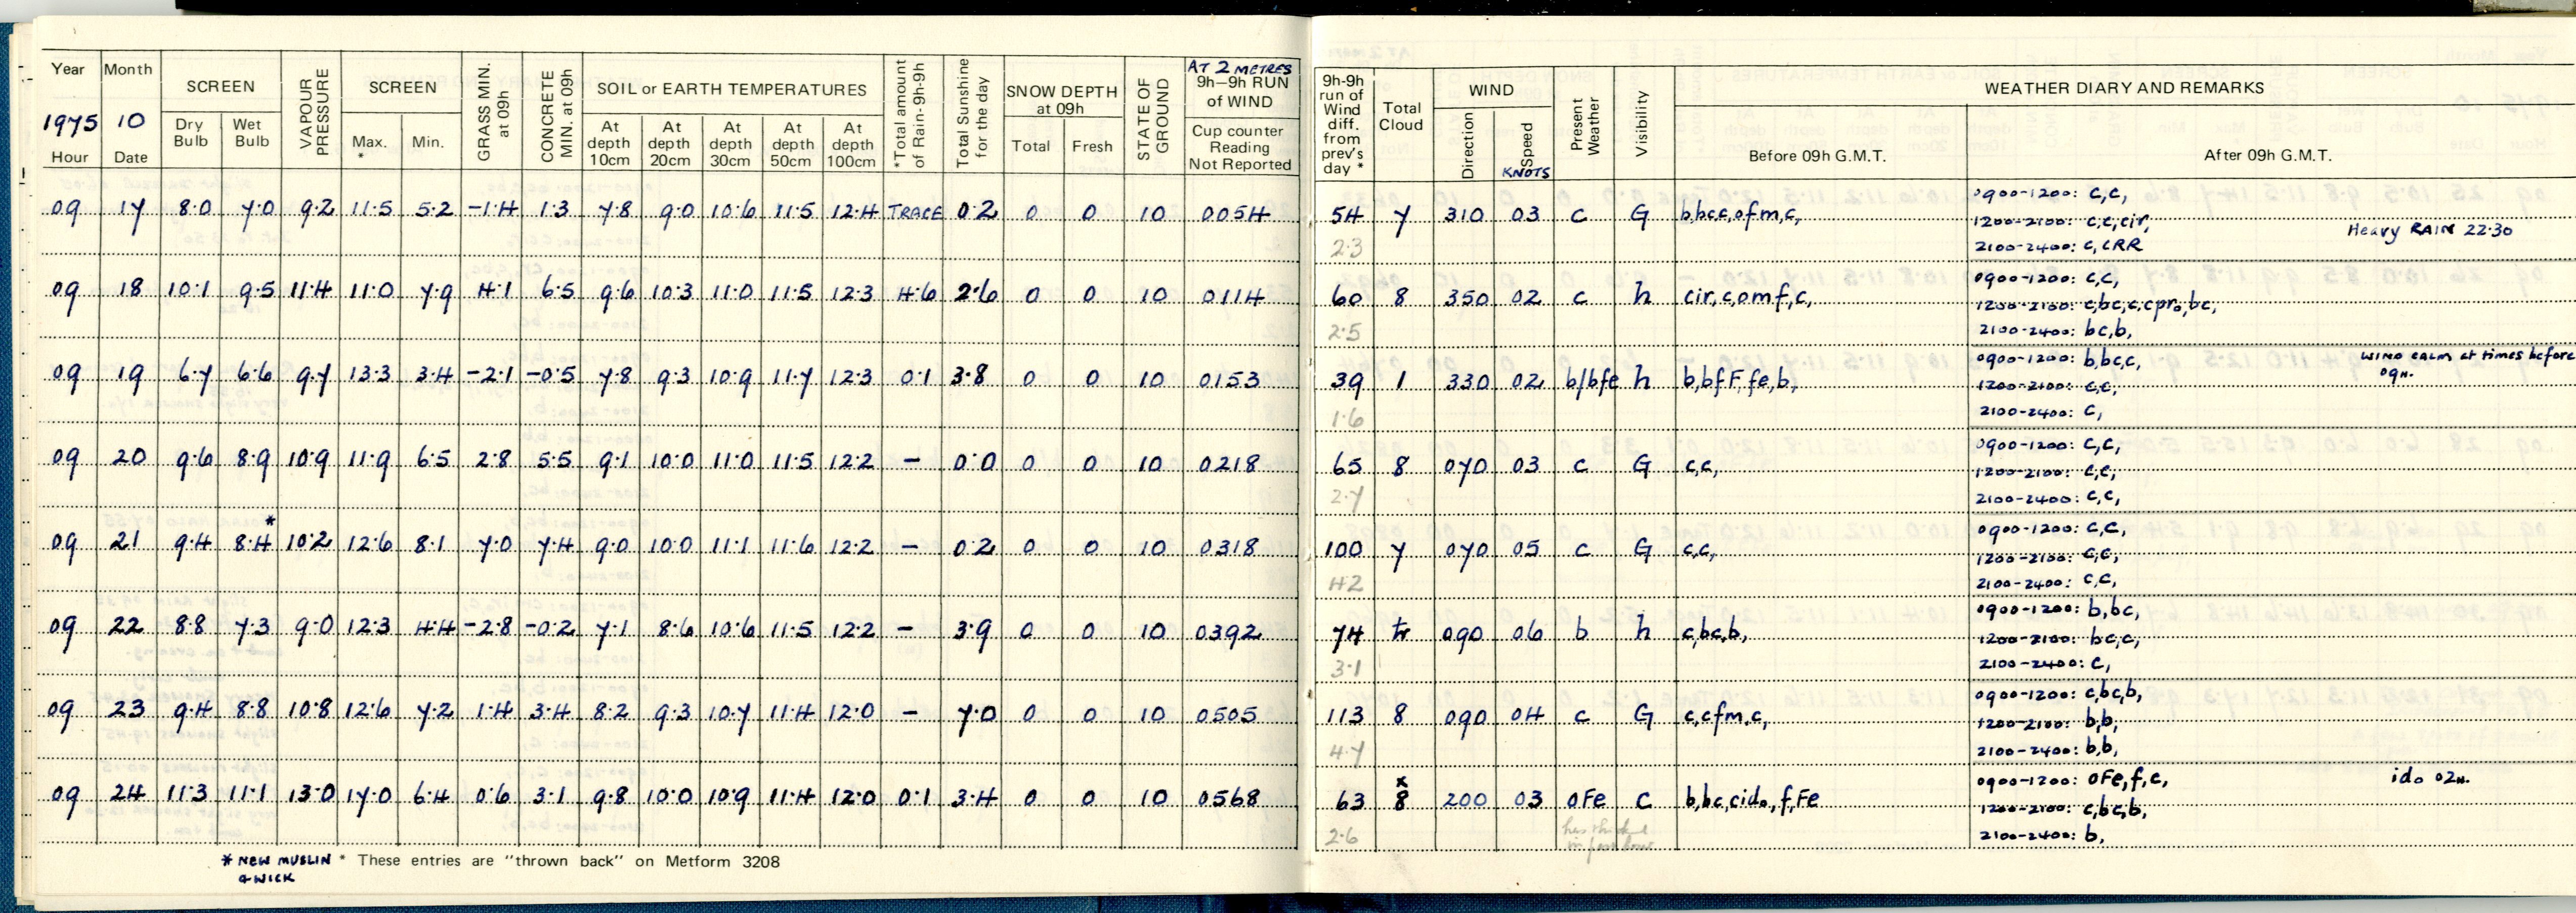 Year Month SCREEN VAPOUR PRESSURE SCREEN GRASS MIN. at 09h CONCRETE MIN. at 09h SOIL or EARTH TEMPERATURES *Total amount of Rain-9h-9h Total Sunshine for the day SNOW DEPTH at 09h STATE OF GROUND AT 2 METRES 9h-9h RUN of WIND 9h-9h run of Wind diff. from prev's day * Total Cloud WIND Present Weather Visibility WEATHER DIARY AND REMARKS
1975 10 Dry Bulb Wet Bulb Max. * Min. At depth 10cm At depth 20cm At depth 30cm At depth 50cm At depth 100cm Total Fresh Cup counter Reading Not Reported Direction Speed KNOTS Before 09h G.M.T. After 09h G.M.T.
Hour Date
0900-1200: c,c,
09 17 8.0 7.0 9.2 11.5 5.2 -1.4 1.3 7.8 9.0 10.6 11.5 12.4 TRACE 0.2 0 0 10 0054 54 7 310 03 c G b,bcc,ofm,c,
1200-2100: c,c,cir, Heavy RAIN 22.30
2.3 2100-2400: c, cRR
0900-1200: c,c,
09 18 10.1 9.5 11.4 11.0 7.9 4.1 6.5 9.6 10.3 11.0 11.5 12.3 4.6 2.6 0 0 10 0114 60 8 350 02 c h cir,c,omf,c,
1200-2100: c,bc,c,cpr₀,bc,
2.5 2100-2400: bc,b,
0900-1200: b,bcc, WIND CALM at times before 09H.
09 19 6.7 6.6 9.7 13.3 3.4 -2.1 -0.5 7.8 9.3 10.9 11.7 12.3 0.1 3.8 0 0 10 0153 39 1 330 02 b/bfe h b,bfF,fe,b,
1200-2100: c,c,
1.6 2100-2400: c,
0900-1200: c,c,
09 20 9.6 8.9 10.9 11.9 6.5 2.8 5.5 9.1 10.0 11.0 11.5 12.2 - 0.0 0 0 10 0218 65 8 070 03 c G c,c,
1200-2100: c,c,
2.7 2100-2400: c,c,
0900-1200: c,c,
09 21 9.4 8.4* 10.2 12.6 8.1 7.0 7.4 9.0 10.0 11.1 11.6 12.2 - 0.2 0 0 10 0318 100 7 070 05 c G c,c,
1200-2100: c,c,
4.2 2100-2400: c,c,
0900-1200: b,bc,
09 22 8.8 7.3 9.0 12.3 4.4 -2.8 -0.2 7.1 8.6 10.6 11.5 12.2 - 3.9 0 0 10 0392 74 tr 090 06 b h c,bc,b,
1200-2100: bc,c,
3.1 2100-2400: c,
0900-1200: c,bc,b,
09 23 9.4 8.8 10.8 12.6 7.2 1.4 3.4 8.2 9.3 10.7 11.4 12.0 - 7.0 0 0 10 0505 113 8 090 04 c G c,cfm,c,
1200-2100: b,b,
4.7 2100-2400: b,b,
0900-1200: oFe,f,c, ido 02H.
09 24 11.3 11.1 13.0 17.0 6.4 0.6 3.1 9.8 10.0 10.9 11.4 12.0 0.1 3.4 0 0 10 0568 63 8* 200 03 oFe c b,bc,cid₀,f,Fe
1200-2100: c,bc,b,
2.6 in past hour 2100-2400: b,
* NEW MUSLIN & WICK
* These entries are "thrown back" on Metform 3208